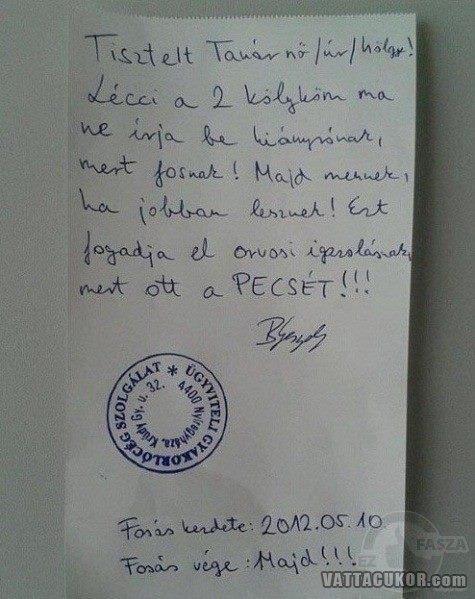 Tisztelt Tanár nő/úr/hölgy!
Lécci a 2 kölyköm ma
ne írja be hiányzónak,
mert fosnak! Majd mennek,
ha jobban lesznek! Ezt
fogadja el orvosi igazolásnak,
mert ott a PECSÉT!!!
ÜGYVITELI GYAKORLÓCÉG SZOLGÁLAT *
4400 Nyíregyháza, Krúdy Gy. u. 32.
Fosás kezdete: 2012.05.10
Fosás vége: Majd!!!
EZ FASZA
VATTACUKOR.com